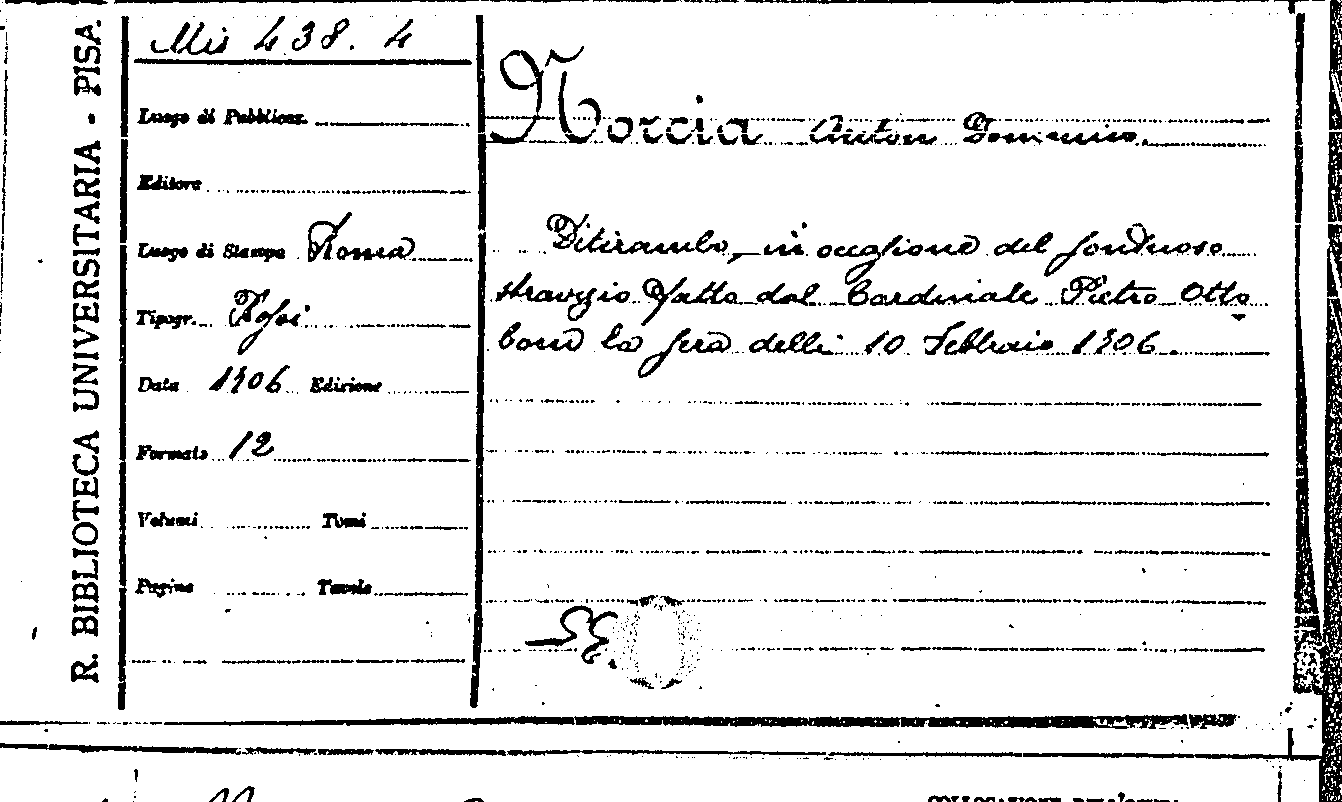 R. BIBLIOTECA UNIVERSITARIA - PISA.
Mis 438. 4
Luogo di Pubblicaz.
Editore
Luogo di Stampa Roma
Tipogr. Rossi
Data 1706 Edizione
Formato 12
Volumi Tomi
Pagine Tavole
Norcia Anton Domenico.
Ditirambo, in occasione del sontuoso
stravizio fatto dal Cardinale Pietro Otto
boni la sera delli 10 Febbraio 1706.